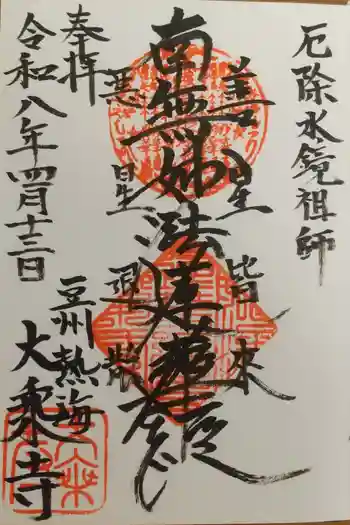 厄除水鏡祖師
善星皆来
南無妙法蓮華経
悪星退散
奉拝
令和八年四月十三日
豆州熱海
大乗寺